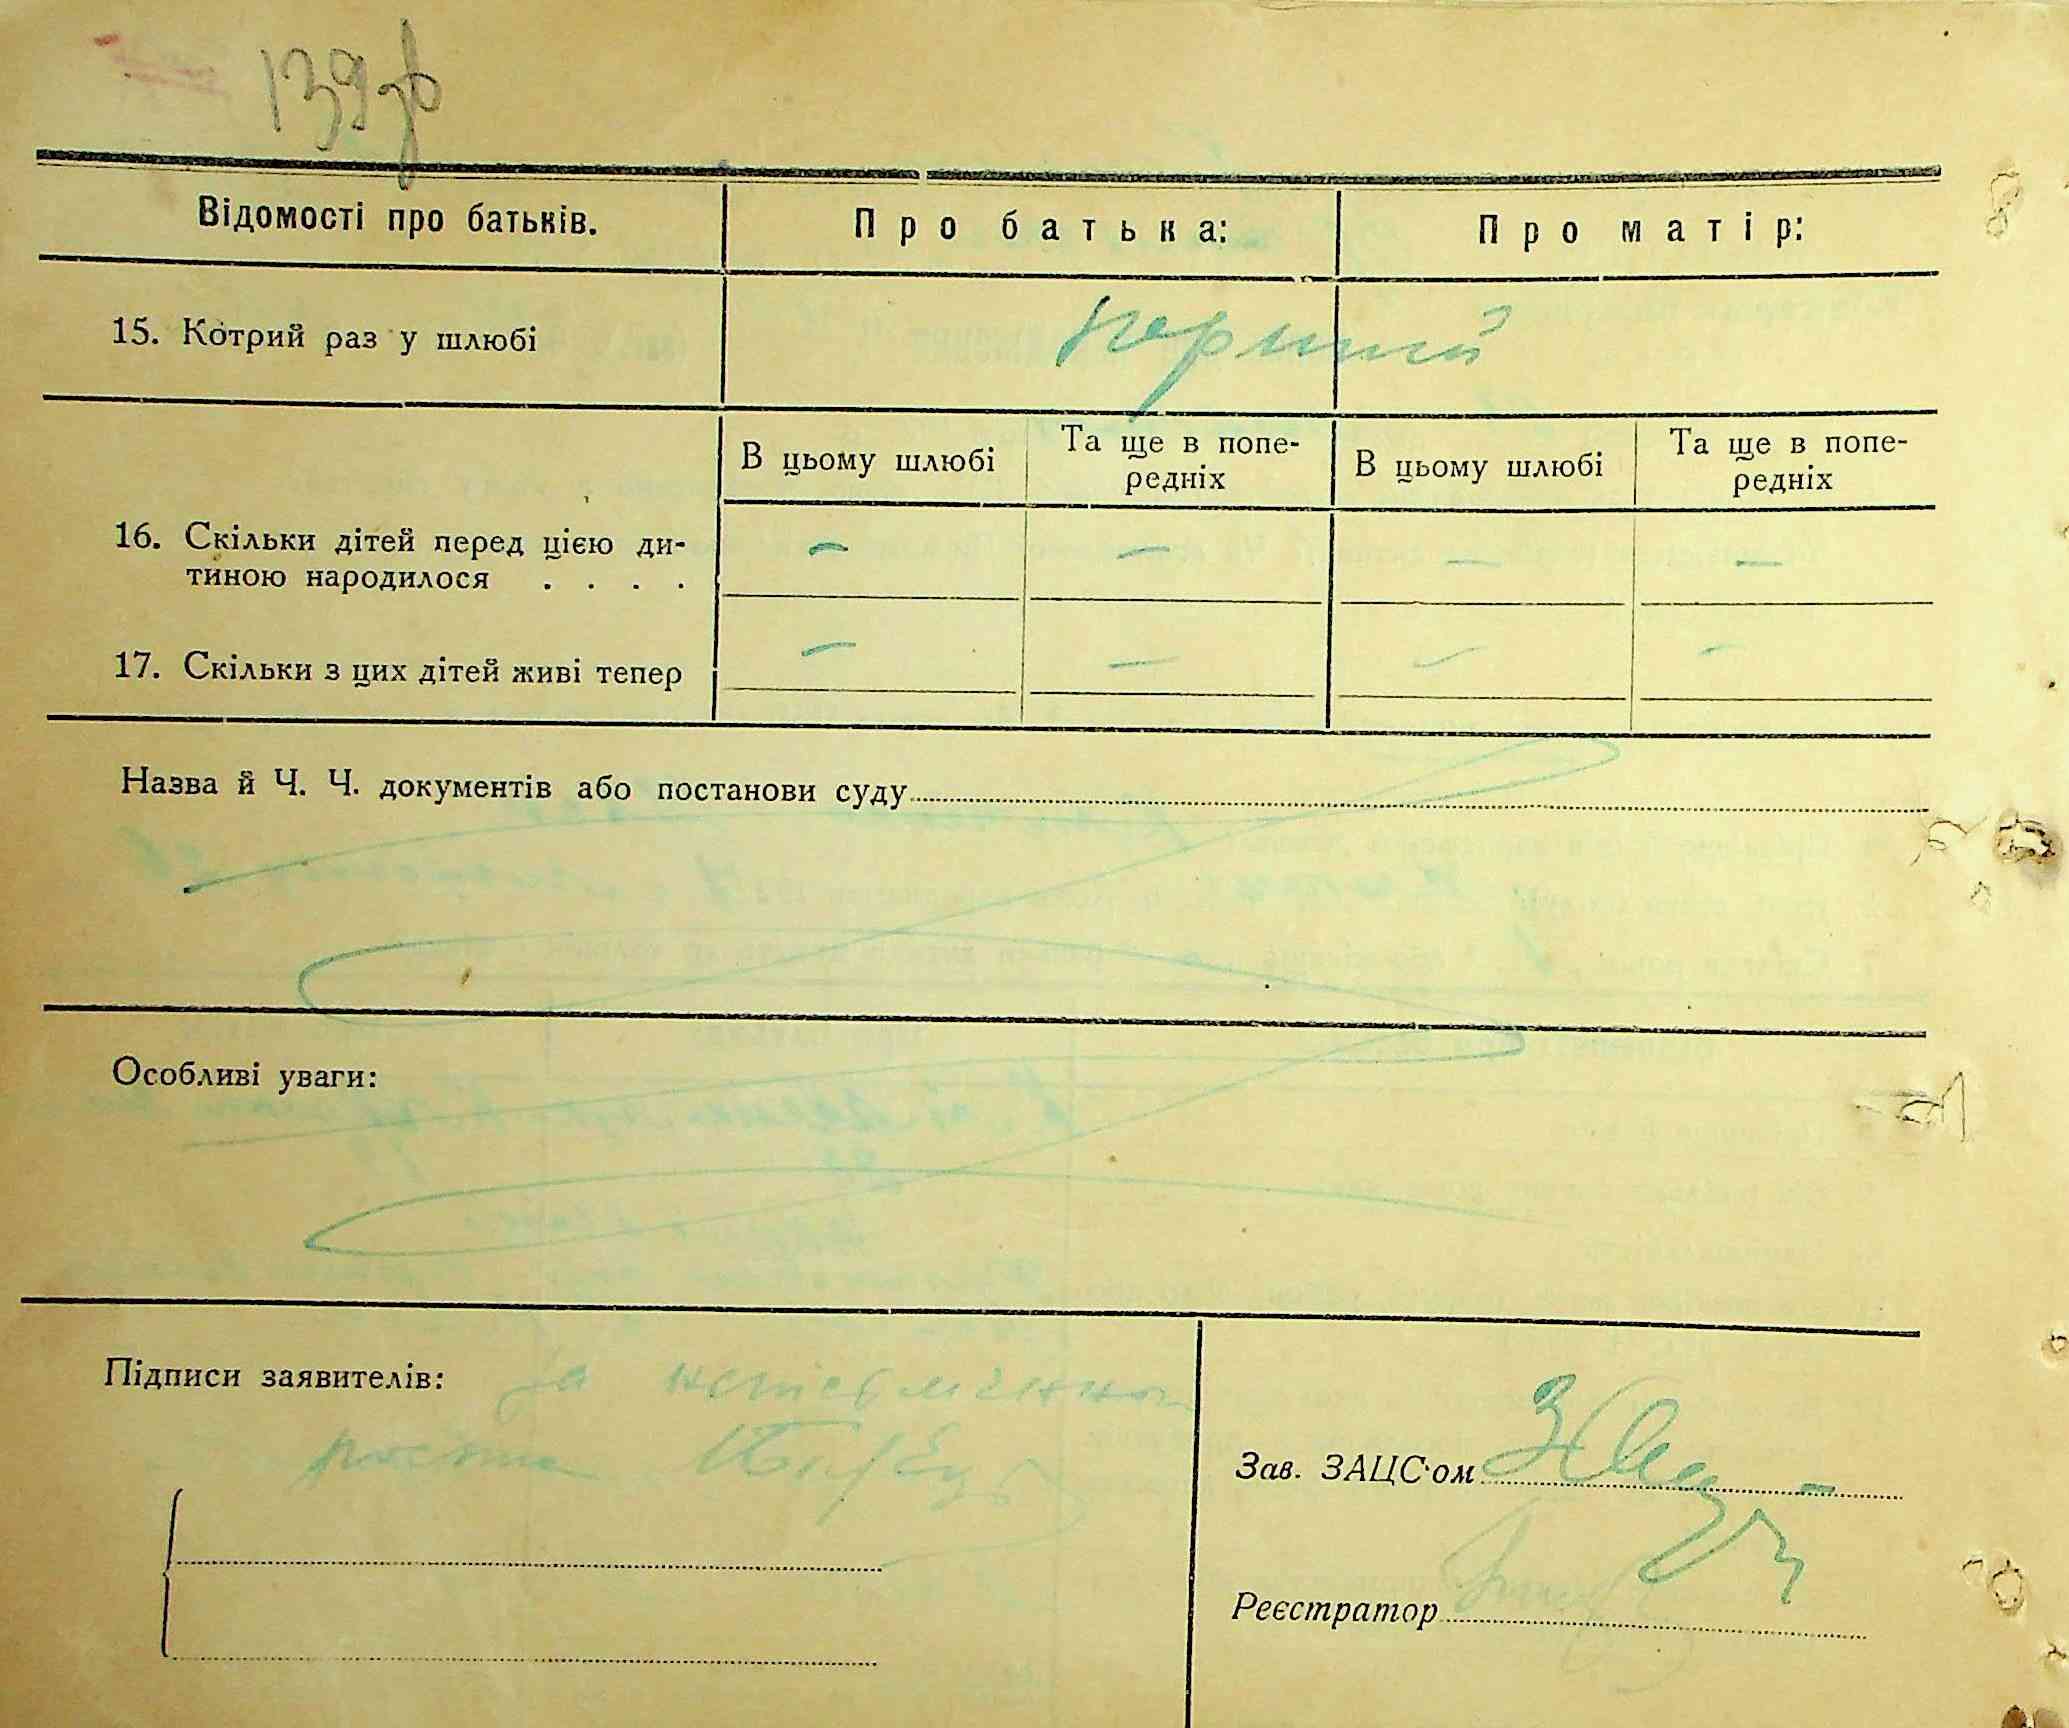 139зв
Відомості про батьків. Про батька: Про матір:
15. Котрий раз у шлюбі перший
В цьому шлюбі Та ще в попе- В цьому шлюбі Та ще в попе-
редніх редніх
16. Скільки дітей перед цією ди- — — — —
тиною народилося . . . .
17. Скільки з цих дітей живі тепер — — — —
Назва й Ч. Ч. документів або постанови суду
Особливі уваги:
Підписи заявителів: за неписьменного
Зав. ЗАЦС'ом
Реєстратор